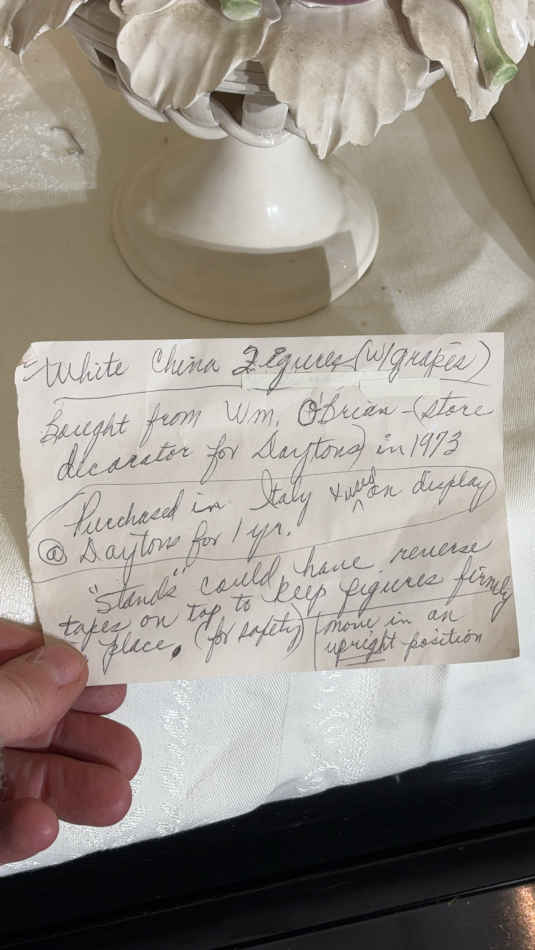 White China 2 Figures (w/grapes)
Bought from Wm. O'Brian - (store
decorator for Daytons) in 1973
Purchased in Italy & was on display
@ Daytons for 1 yr.
"Stands" could have reverse
tapes on top to keep figures firmly
place. (for safety)
move in an
upright position